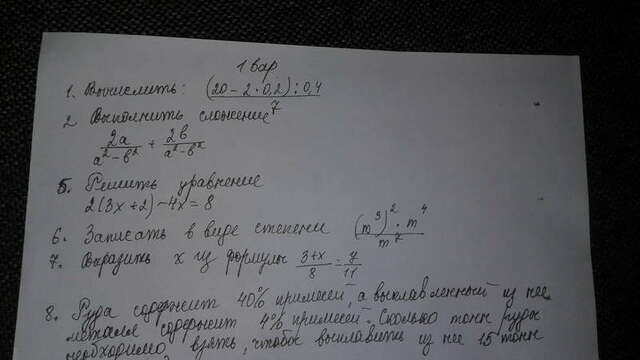 1 вар
1. Вычислить: (20-2·0,2):0,4
2 Выполнить сложение
2a/a²-b² + 2b/a²-b²
5. Решить уравнение
2(3x+2)-4x=8
6. Записать в виде степени (m³)²·m⁴/m⁷
7. Выразить x из формулы 3+x/8=7/11
8. Руда содержит 40% примесей, а выплавленный из нее
металл содержит 4% примесей. Сколько тонн руды
необходимо взять, чтобы выплавить из нее 15 тонн